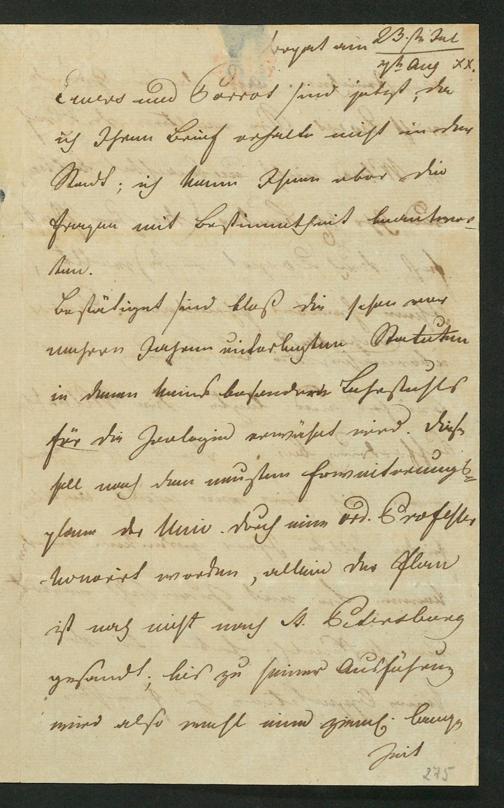 Dorpat am 23. st. Jul
7th Aug XX.
Ewers und Parrot sind jetzt, da
ich Ihren Brief erhalte nicht in der
Stadt; ich kann Ihnen aber die
Fragen mit Bestimmtheit beantwor-
ten.
Bestätiget sind blos die schon vor
mehrern Jahren unterlegten Statuten
in denen keines besondern Lehrstuhls
für die Zoologie erwähnt wird. Dieser
soll nach dem neusten Erweiterungs-
plane der Univ. durch einen ord. Professor
honorirt werden, allein der Plan
ist noch nicht nach St. Petersburg
gesandt; bis zu seiner Ausführung
wird also wohl eine ziemL. lange
Zeit
275